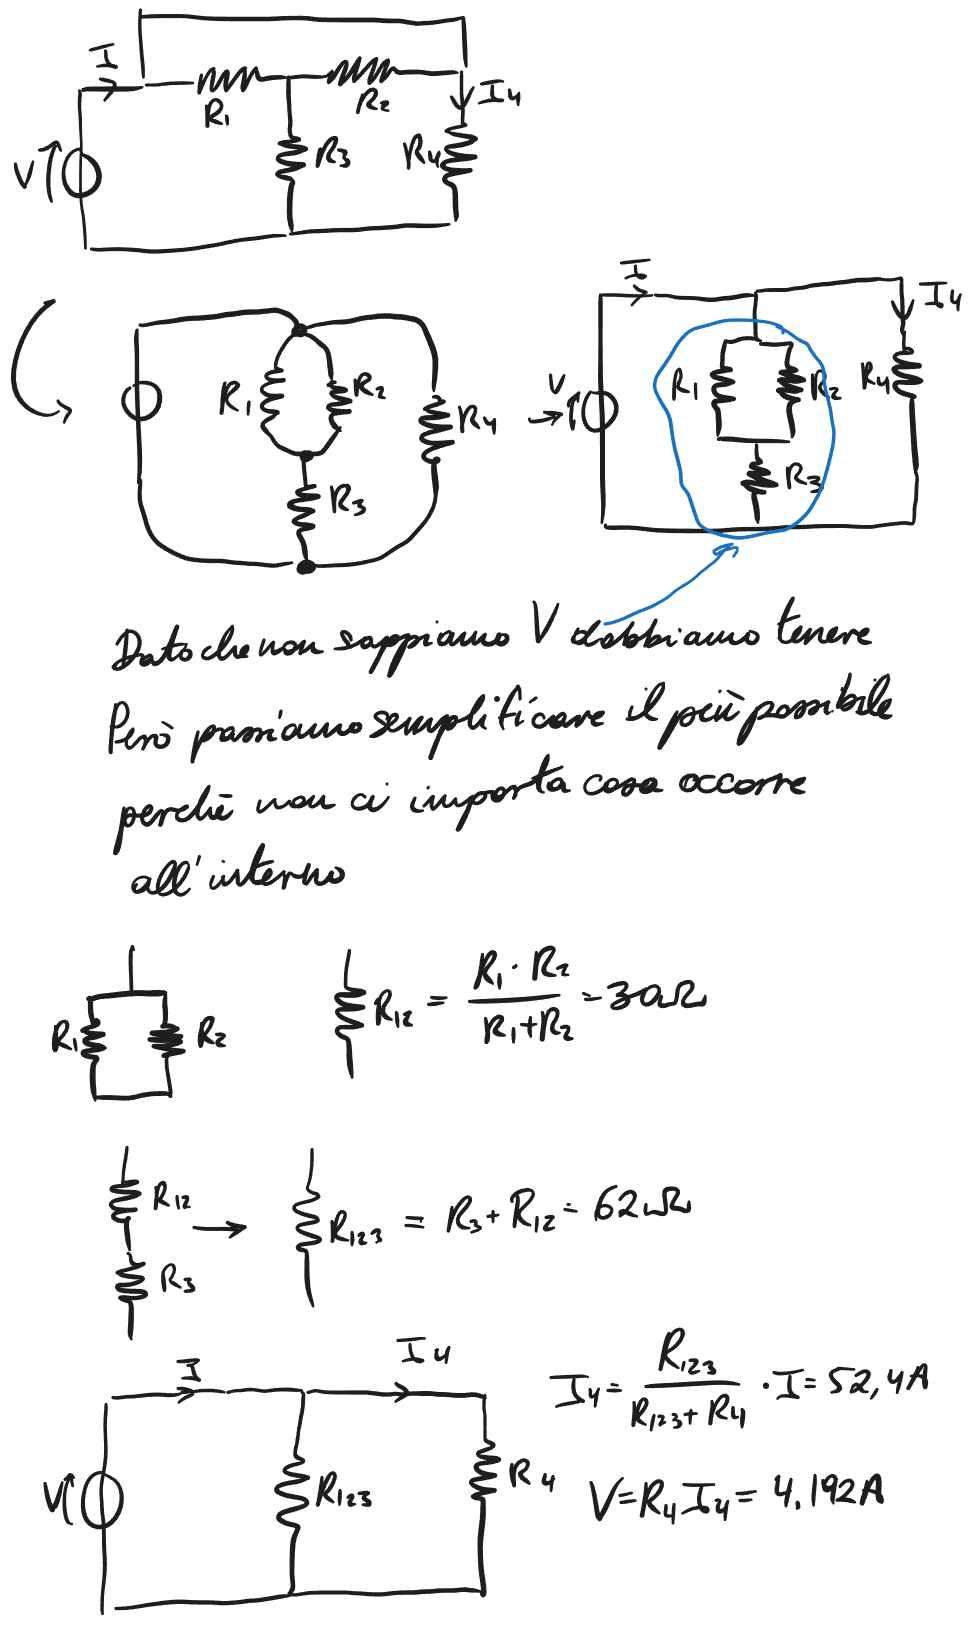 I
R1
R2
I4
V
R3
R4
I
I4
R1
R2
R4
V
R1
R2
R4
R3
R3
Dato che non sappiamo V dobbiamo tenere
Però possiamo semplificare il più possibile
perchè non ci importa cosa occorre
all'interno
R1
R2
R12 = R1 · R2 / R1+R2 = 30Ω
R12
R3
R123 = R3 + R12 = 62Ω
I
I4
V
R123
R4
I4 = R123 / R123 + R4 · I = 52,4A
V = R4 I4 = 4.192A